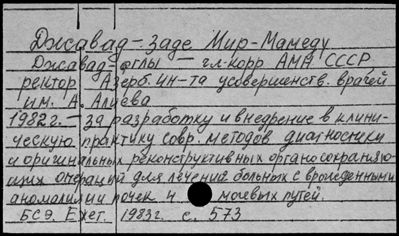 Джавад-заде Мир-Мамеду
Джавад-оглы — чл-корр АМН СССР
ректор Азерб. ин-та усовершенств. врачей
им. А. Алиева
1982г. — за разработку и внедрение в клини-
ческую практику совр. методов диагностики
и оригинальных реконструктивных органосохраняю-
щих операций для лечения больных с врожденными
аномалиями почек и мочевых путей.
БСЭ. Ежег. 1983г. с. 573